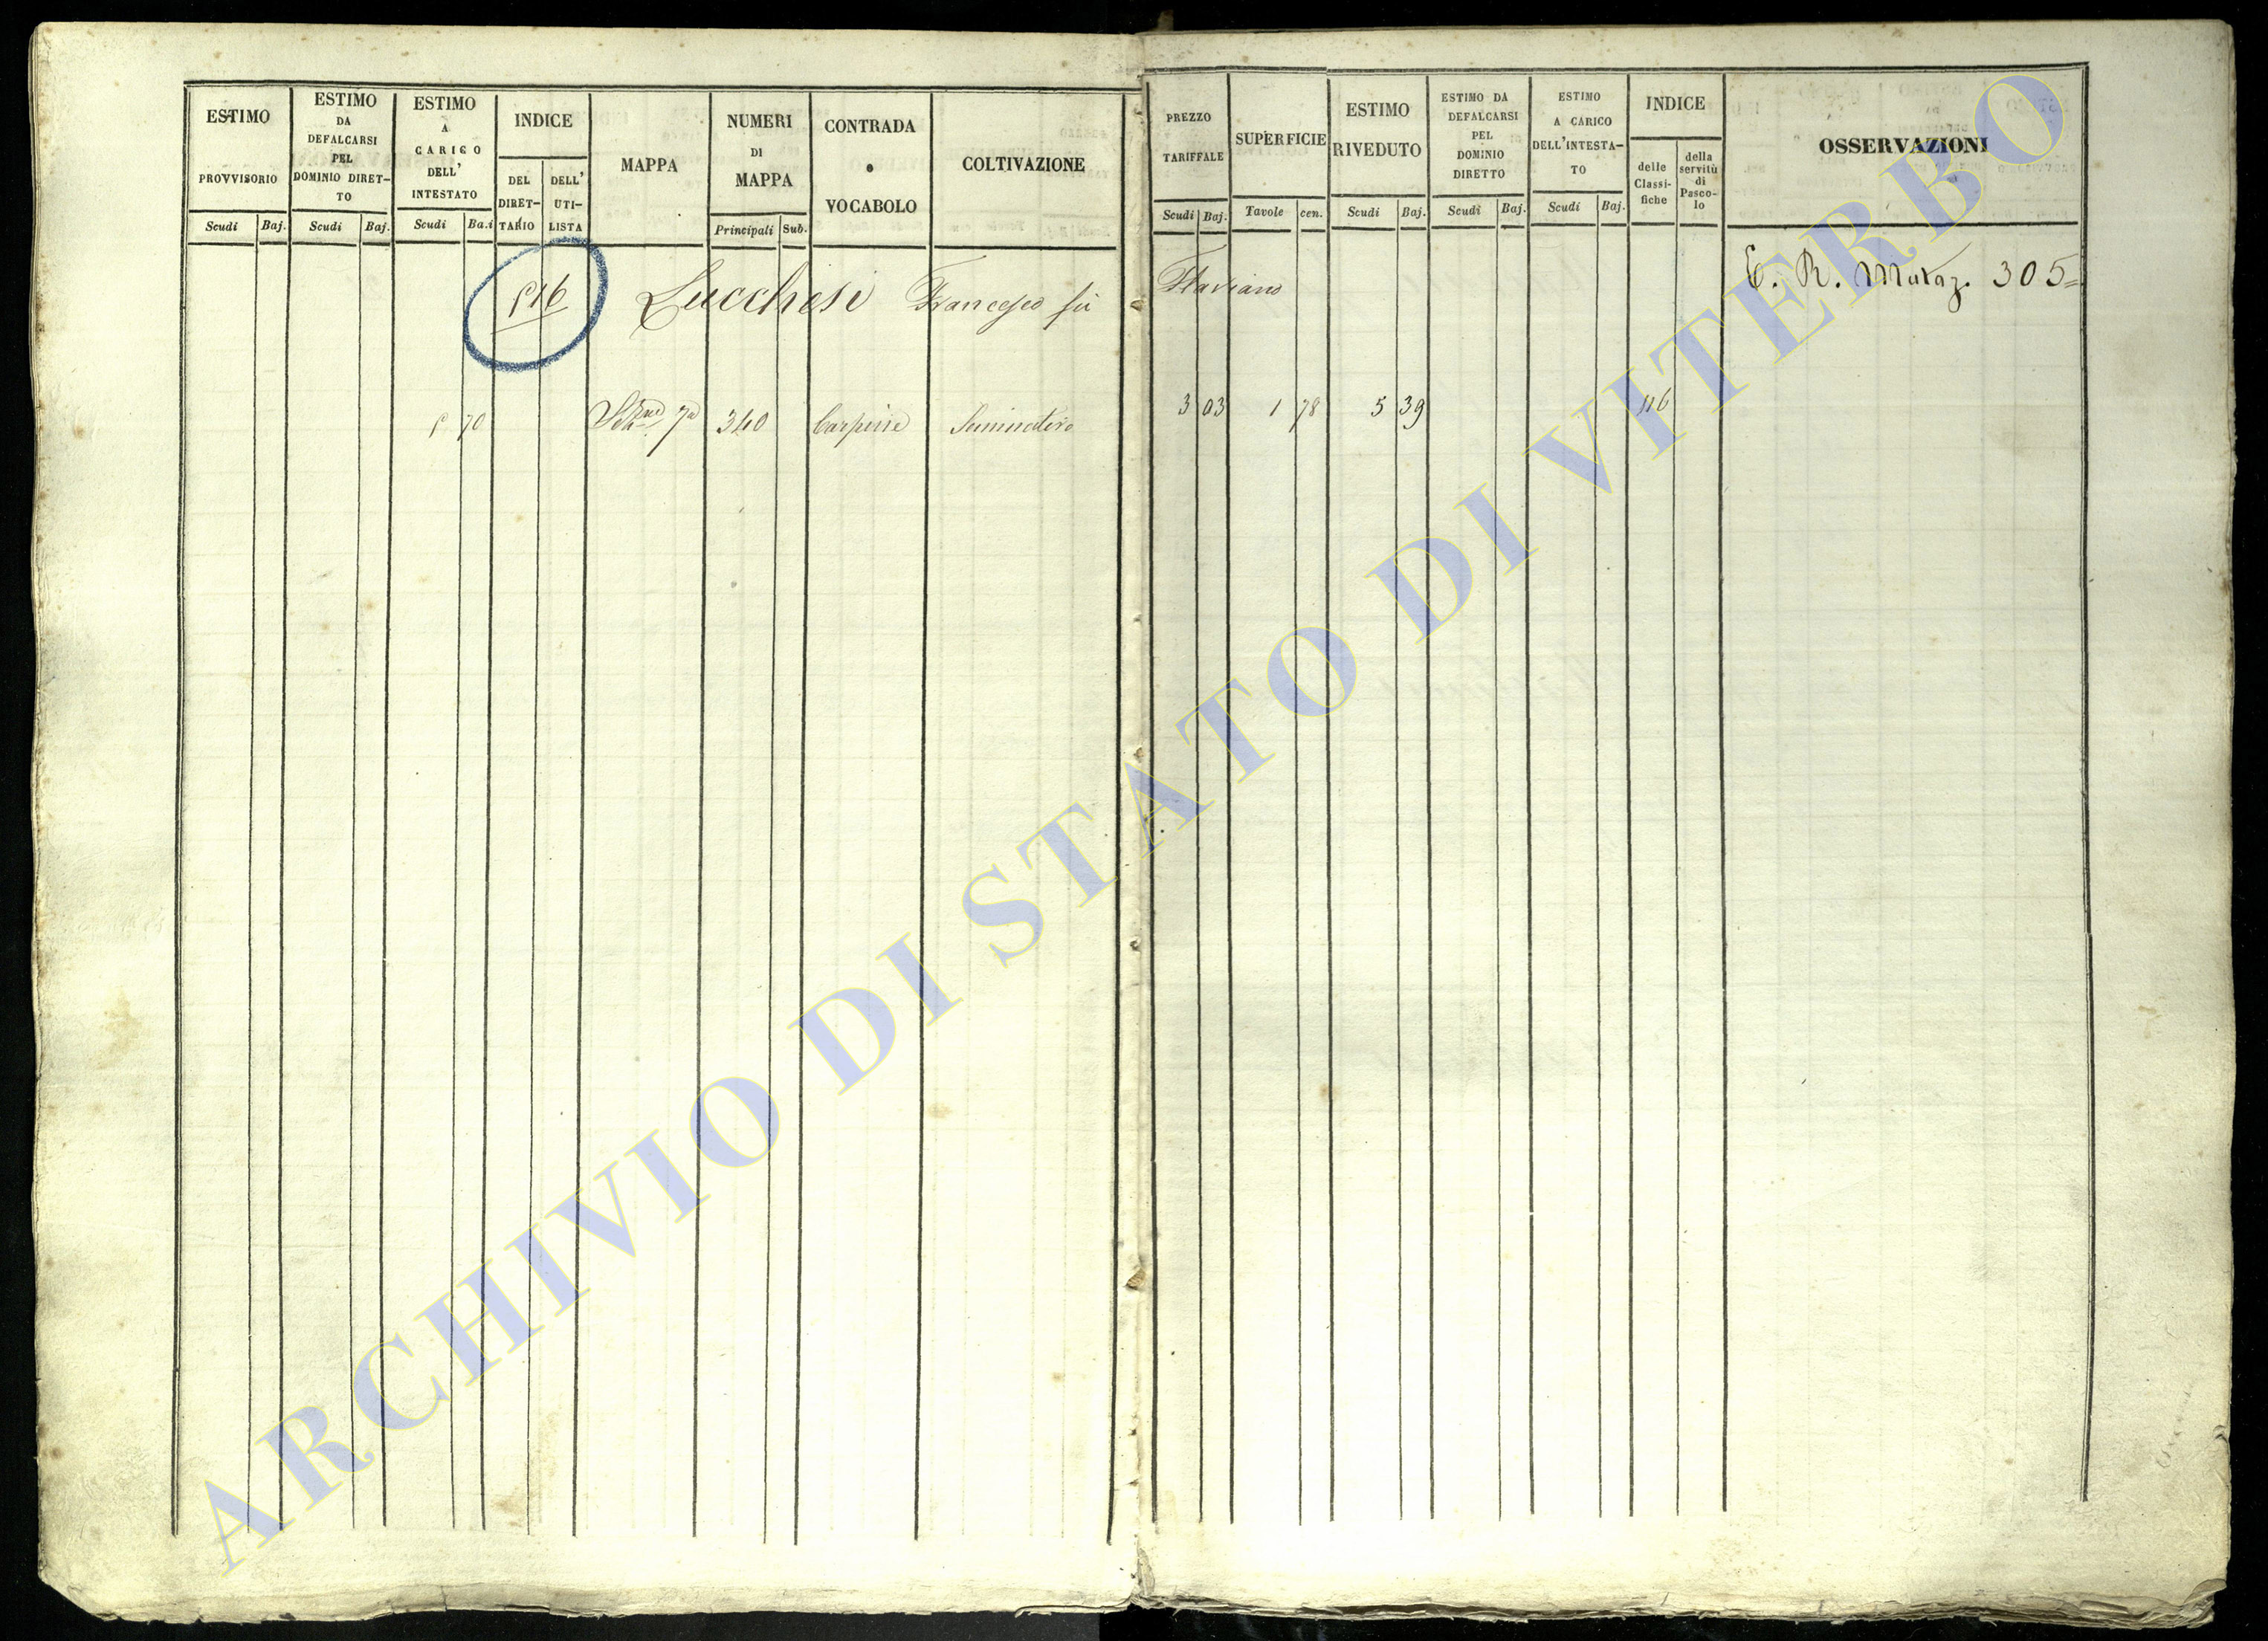 ESTIMO PROVVISORIO
Scudi Baj.
ESTIMO DA DEFALCARSI PEL DOMINIO DIRET-TO
Scudi Baj.
ESTIMO A CARICO DELL' INTESTATO
Scudi Ba.i
INDICE
DEL DIRET-TARIO
DELL' UTI-LISTA
MAPPA
NUMERI DI MAPPA
Principali Sub.
CONTRADA o VOCABOLO
COLTIVAZIONE
PREZZO TARIFFALE
Scudi Baj.
SUPERFICIE
Tavole cen.
ESTIMO RIVEDUTO
Scudi Baj.
ESTIMO DA DEFALCARSI PEL DOMINIO DIRETTO
Scudi Baj.
ESTIMO A CARICO DELL'INTESTA-TO
Scudi Baj.
INDICE
delle Classi-fiche
della servitù di Pasco-lo
OSSERVAZIONI
Lucchesi Francesco fu Flaviano
305=
70 340 Seminativo 3 03 1 78 5 39 116
ARCHIVIO DI STATO DI VITERBO